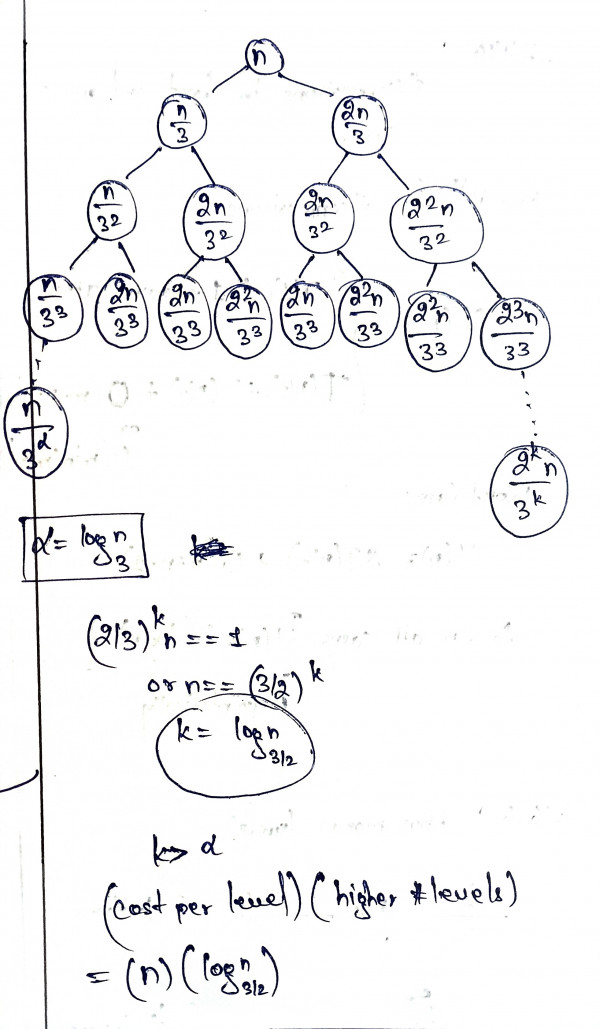 n
n/3 2n/3
n/3² 2n/3² 2n/3² 2²n/3²
n/3³ 2n/3³ 2n/3³ 2²n/3³ 2n/3³ 2²n/3³ 2²n/3³ 2³n/3³
n/3^α 2^k n/3^k
α = log₃ n
(2/3)^k n == 1
or n == (3/2)^k
k = log_{3/2} n
k > α
(cost per level) (higher # levels)
= (n) (log_{3/2} n)